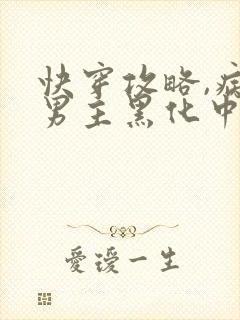 快穿攻略,病
男主黑化中
爱瑷一生